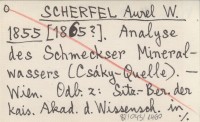 o SCHERFEL Aurel W.
1855 [1865?]. Analyse
des Schmeckser Mineral-
wassers (Csáky-Quelle). —
Wien. Odb. z: Sitz-Ber. der
kais. Akad. d. Wissensch. in